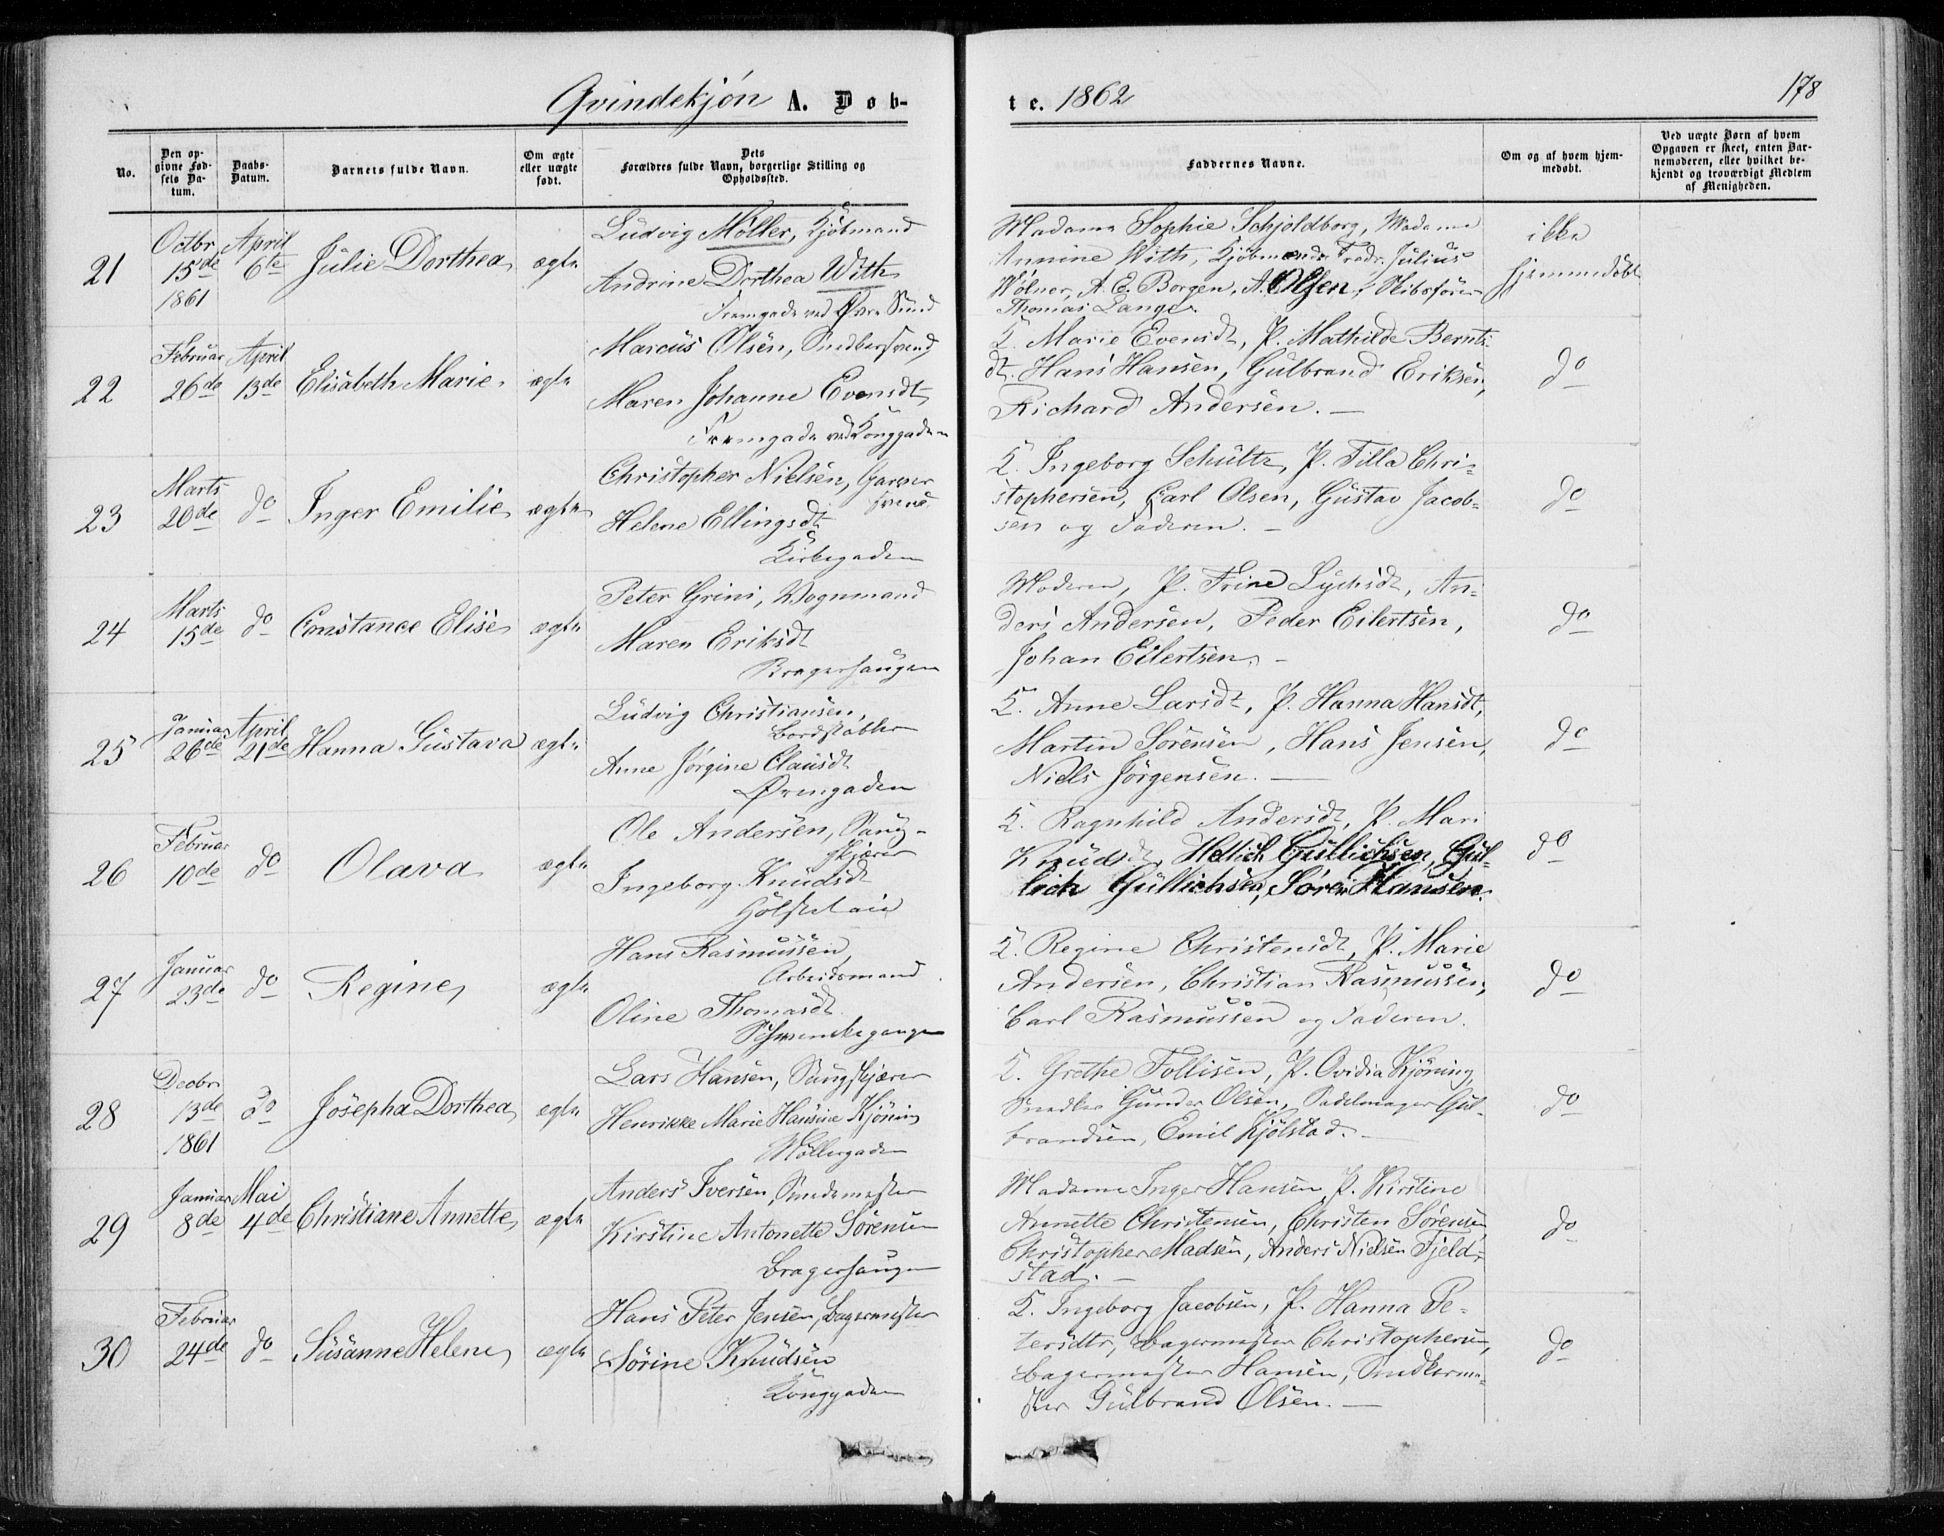 Qvindekjøn A. Døb-
te. 1862
178
No.
Den op-
givne Fød-
sels Da-
tum.
Daabs-
Datum.
Barnets fulde Navn.
Om ægte
eller uægte
født.
Dets
Forældres fulde Navn, borgerlige Stilling og
Opholdssted.
Faddernes Navne.
Om og af hvem hjem-
medøbt.
Ved uægte Børn af hvem
Opgaven er skeet, enten Bar-
nemoderen, eller hvilket be-
kjendt og troværdigt Medlem
af Menigheden.
21
Octbr
15de
1861
April
6te
Julie Dorthea
ægte
Ludvig Möller, Kjøbmand
Andrine Dorthea With
Tremgade ved Øvre Sund
Madame Sophie Schjoldborg, Madame
Annine With, Kjøbmænd Fredr. Julius
Wølner, A. E. Borgen, A. Olsen, Skibsfører
Thomas Lange.
ikke
hjemmedøbt
22
Februar
26de
April
13de
Elisabeth Marie
ægte
Marcus Olsen, Snedkersvend
Maren Johanne Evensdt
Tremgade ved Konggaden
K. Marie Evensdt, P. Mathilde Bernts-
dt. Hans Hansen, Gulbrand Eriksen,
Richard Andersen.
do
23
Marts
20de
do
Inger Emilie
ægte
Christopher Nielsen, Garver
svend
Helene Ellingsdt
Kirkegaden
K. Ingeborg Schultz, P. Tilla Chri-
stophersen, Carl Olsen, Gustav Jacob-
sen og Faderen.
do
24
Marts
15de
do
Constance Elise
ægte
Peter Grini, Vognmand
Maren Eriksdt
Bragerhaugen
Moderen, P. Trine Lychsdt, An-
ders Andersen, Peder Eilertsen,
Johan Eilertsen.
do
25
Januar
26de
April
21de
Hanna Gustava
ægte
Ludvig Christiansen,
Bordstabler
Anne Jørgine Clausdt
Øvregaden
K. Anne Larsdt, P. Hanna Hansdt,
Martin Sørensen, Hans Jensen,
Niels Jörgensen.
do
26
Februar
10de
do
Olava
ægte
Ole Andersen, Saug-
skjærer
Ingeborg Knudsdt
K. Ragnhild Andersdt, P. Mari
Knudsdt, Hellich Gullichsen, Gul-
lich Gullichsen, Søren Hansen.
do
27
Januar
23de
do
Regine
ægte
Hans Rasmussen,
Arbeidsmand
Oline Thomasdt
Schwenckegangen
K. Regine Christensdt, P. Marie
Andersen, Christian Rasmussen,
Carl Rasmussen og Faderen.
do
28
Decbr
13de
1861
do
Josepha Dorthea
ægte
Lars Hansen, Saugskjærer
Henrikke Marie Hansine Kjöning
Møllergaden
K. Grethe Follisen, P. Ovidia Kjöning,
Snedker Gunder Olsen, Sadelmager Gul-
brandsen, Emil Kjölstad.
do
29
Januar
8de
Mai
4de
Christiane Annette
ægte
Anders Iversen, Smedemester
Kirstine Antonette Sørensen
Bragerhaugen
Madame Inger Hansen, P. Kirstine
Annette Christensen, Christen Sørensen
Christopher Madsen, Anders Nielsen Fjeld-
stad.
do
30
Februar
24de
do
Susanne Helene
ægte
Hans Peter Jensen, Bagermester
Sørine Knudsen
Konggaden
K. Ingeborg Jacobsen, P. Hanna Pe-
tersdtr, Bagermester Christophersen,
Bagermester Hansen, Snedkerme-
ster Gulbrand Olsen.
do